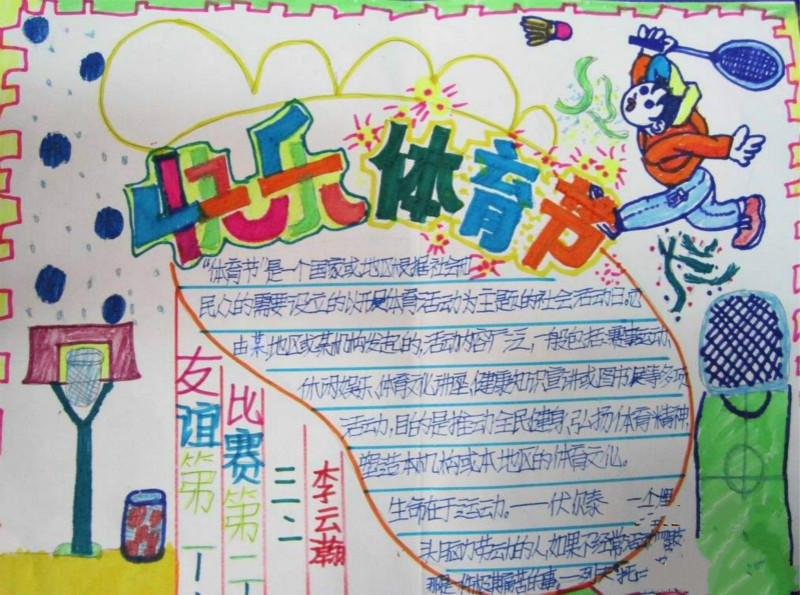 快乐体育节
"体育节"是一个国家或地区根据社会和
民众的需要设立的以开展体育活动为主题的社会活动日。
由某地区或某机构发起的,活动内容广泛,一般包括:赛事活动、
休闲娱乐、体育文化讲座、健康知识宣讲或图书展等多项
活动,目的是推动全民健身,弘扬体育精神,
塑造本机构或本地区的体育文化。
生命在于运动。——伏尔泰 一个埋
头脑力劳动的人,如果不经常活动
是一件极其痛苦的事
友谊第一
比赛第二
三二
李云瀚